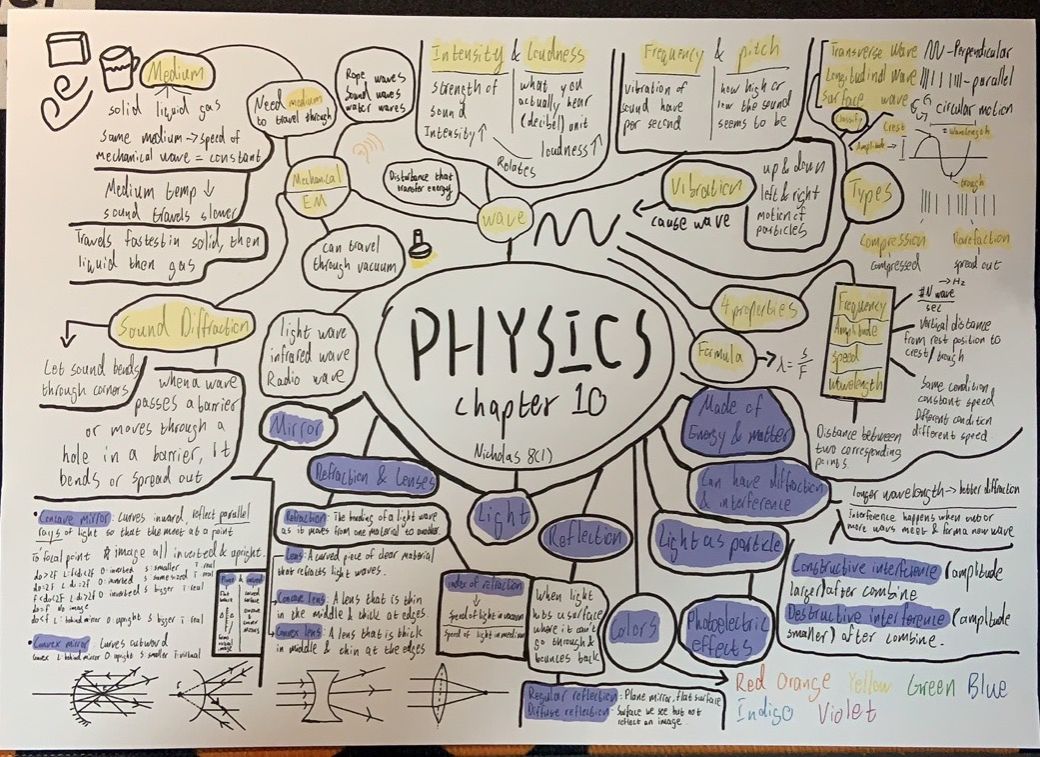 PHYSICS
chapter 10
Nicholas 8(1)
Medium
solid liquid gas
Same medium → speed of
mechanical wave = constant
Medium temp ↓
sound travels slower
Travels fastest in solid, then
liquid then gas
Need medium
to travel through
Rope waves
Sound waves
water waves
Mechanical
EM
can travel
through vacuum
light wave
infrared wave
Radio wave
Disturbance that
transfer energy
wave
Intensity & Loudness
strength of
sound
Intensity ↑
what you
actually hear
(decibel) unit
loudness ↑
Relates
Frequency & pitch
vibration of
sound have
per second
how high or
low the sound
seems to be
Vibration
cause wave
up & down
left & right
motion of
particles
Transverse wave - Perpendicular
Longitudinal wave - parallel
surface wave circular motion
Classify
Types
Crest
Amplitude
= wavelength
trough
Compression
compressed
Rarefaction
spread out
4 properties
Formula
→ λ = s/F
Frequency
Amplitude
speed
wavelength
→ Hz
# N wave
sec
vertical distance
from rest position to
crest/trough
Same condition
constant speed
Different condition
different speed
Distance between
two corresponding
points
Sound Diffraction
Let sound bends
through corners
when a wave
passes a barrier
or moves through a
hole in a barrier, it
bends or spread out
Mirror
• Concave mirror: Curves inward, reflect parallel
rays of light so that the meet at a point
To focal point & image all inverted & upright.
do=f no image
do<f L: behind mirror O: upright S: bigger i: real
• Convex mirror: Curves outward
Convex L: behind mirror O: upright S: smaller i: virtual
Refraction & Lenses
Refraction: The bending of a light wave
as it moves from one material to another.
Lens: A curved piece of clear material
that refracts light waves.
Concave lens: A lens that is thin
in the middle & thick at edges.
Convex lens: A lens that is thick
in middle & thin at the edges
Index of refraction
Speed of light in vacuum
Speed of light in medium
Light
Reflection
When light
hits a surface
where it can't
go through &
bounces back
Regular reflection: Plane mirror, flat surface
Diffuse reflection: Surface we see but not
reflect an image.
Colors
Red Orange Yellow Green Blue
Indigo Violet
Photoelectric
effects
Light as particle
Made of
Energy & matter
Can have diffraction
& interference
longer wavelength → better diffraction
interference happens when two or
more waves meet & form a new wave
Constructive interference (amplitude
larger) after combine
Destructive interference (amplitude
smaller) after combine.